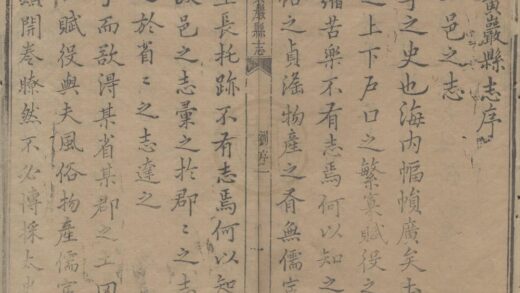 黃巖縣志序
邑之志
之史也海内幅幀廣矣
之上下戶口之繁寡賦役之
苦樂不有志焉何以知之
俗之貞滛物産之有無儒宦
巖縣志 劉序 一
生長托跡不有志焉何以知
邑之志彙之扵郡〻之志
之扵省〻之志達之
而欲淂某省某郡之土田
賦役與夫風俗物産儒宦
開卷瞭然不必博採太史